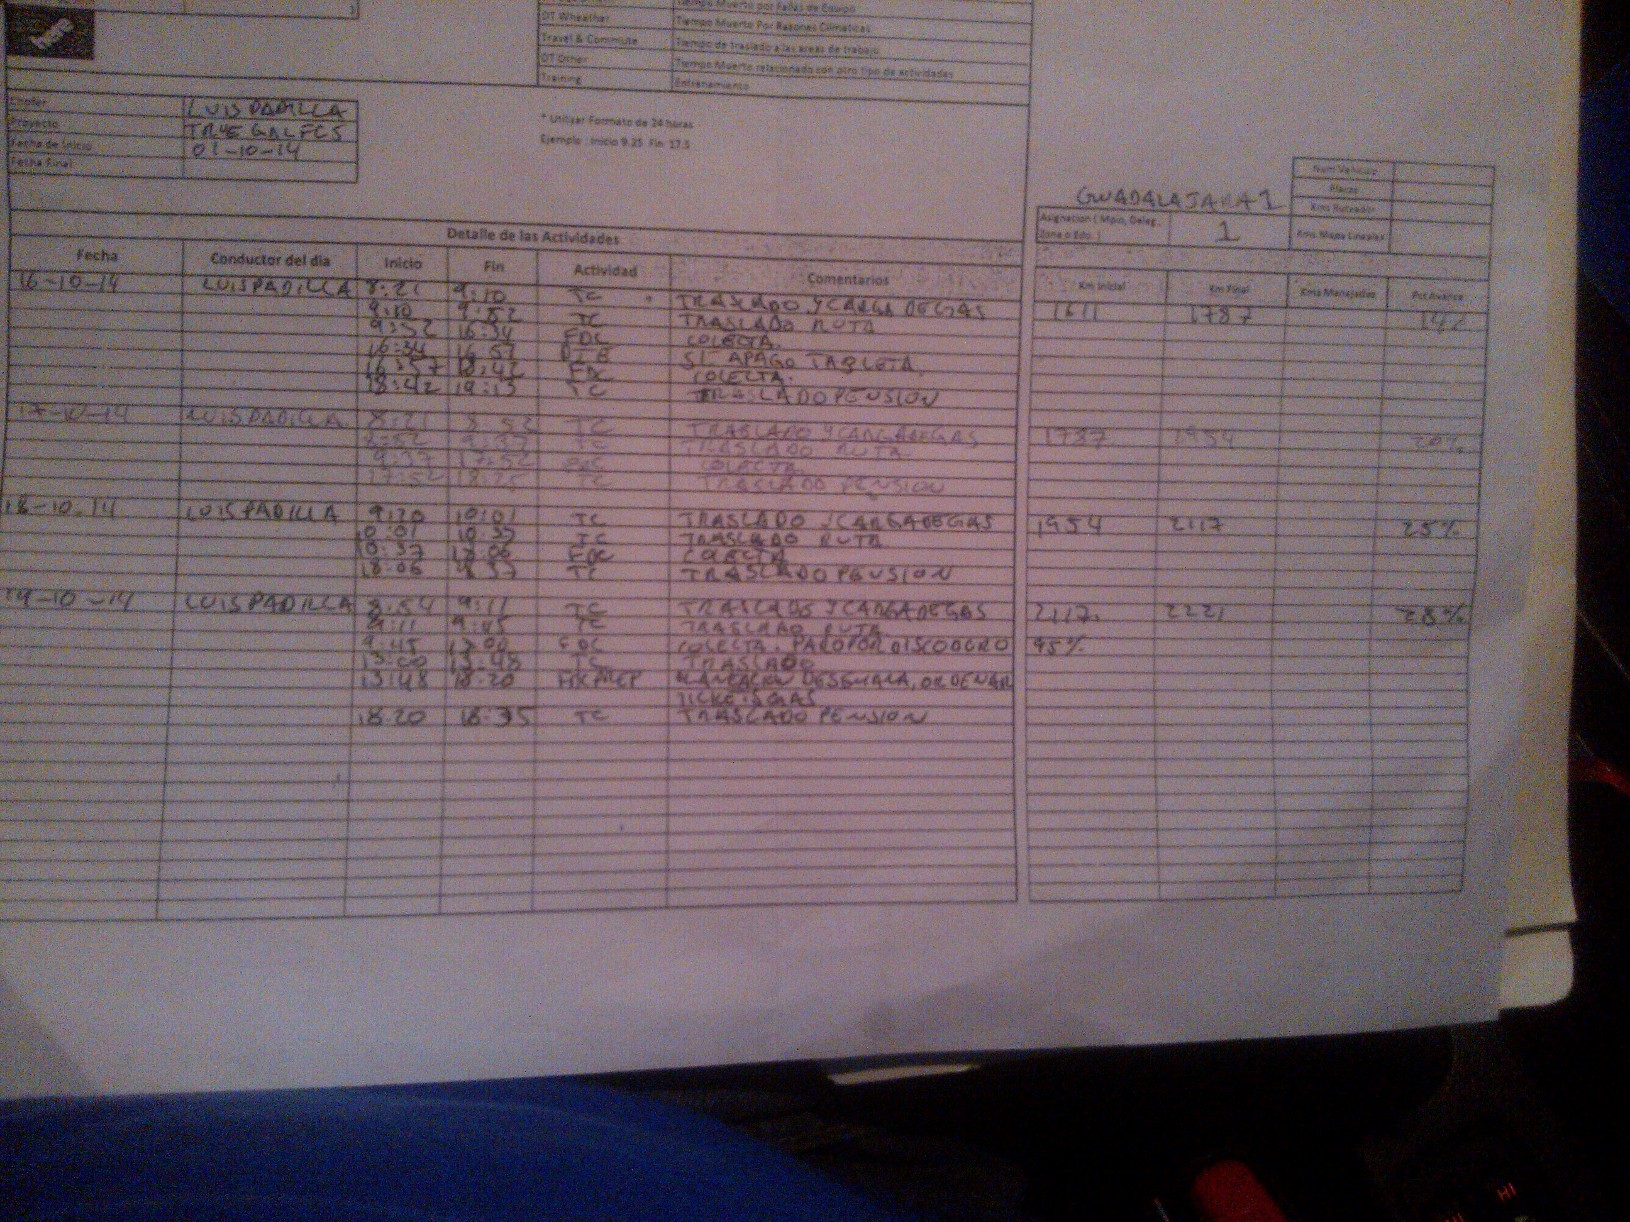 HERE
Tiempo Muerto por Fallas de Equipo
DT Wheather Tiempo Muerto Por Razones Climaticas
Travel & Commute Tiempo de traslado a las areas de trabajo
DT Other Tiempo Muerto relacionado con otro tipo de actividades
Training Entrenamiento
Chofer LUIS PADILLA
Proyecto
Fecha de Inicio 01-10-14
Fecha Final
* Utilizar Formato de 24 horas
Ejemplo : Inicio 9.25 Fin 17.5
Num Vehiculo
Placas
GUADALAJARA 1
Kms Ruteador
Asignacion ( Mpio, Deleg, Zona o Edo. ) 1 Kms Mapa Lineales
Detalle de las Actividades
Fecha Conductor del dia Inicio Fin Actividad Comentarios Km Inicial Km Final Kms Manejados Pct Avance
16-10-14 LUIS PADILLA 8:21 9:10 TC TRASLADO Y CARGA DE GAS 1611 1787
9:10 9:52 TC TRASLADO RUTA
9:52 16:34 FDC COLECTA.
16:34 16:57 SE APAGO TABLETA.
16:57 18:42 FDC COLECTA.
18:42 19:13 TC TRASLADO PENSION
17-10-14 LUIS PADILLA 8:21 8:52 TC TRASLADO Y CARGA DE GAS 1787 1954 20%
8:52 9:37 TC TRASLADO RUTA
9:37 17:52 FDC COLECTA.
17:52 18:25 TC TRASLADO PENSION
18-10-14 LUIS PADILLA 9:20 10:01 TC TRASLADO Y CARGA DE GAS 1954 2117 25%
10:01 10:37 TC TRASLADO RUTA
10:37 18:06 FDC COLECTA
18:06 18:37 TC TRASLADO PENSION
19-10-14 LUIS PADILLA 8:54 9:11 TC TRASLADO Y CARGA DE GAS 2117 2221 28%
9:11 9:45 TC TRASLADO RUTA
9:45 13:00 FDC COLECTA. PARO POR DISCO DURO 95%
13:00 13:48 TC TRASLADO
13:48 18:20 FDC PREP PLANEACION DE SEMANA, ORDENAR
TICKETS GAS
18:20 18:35 TC TRASLADO PENSION